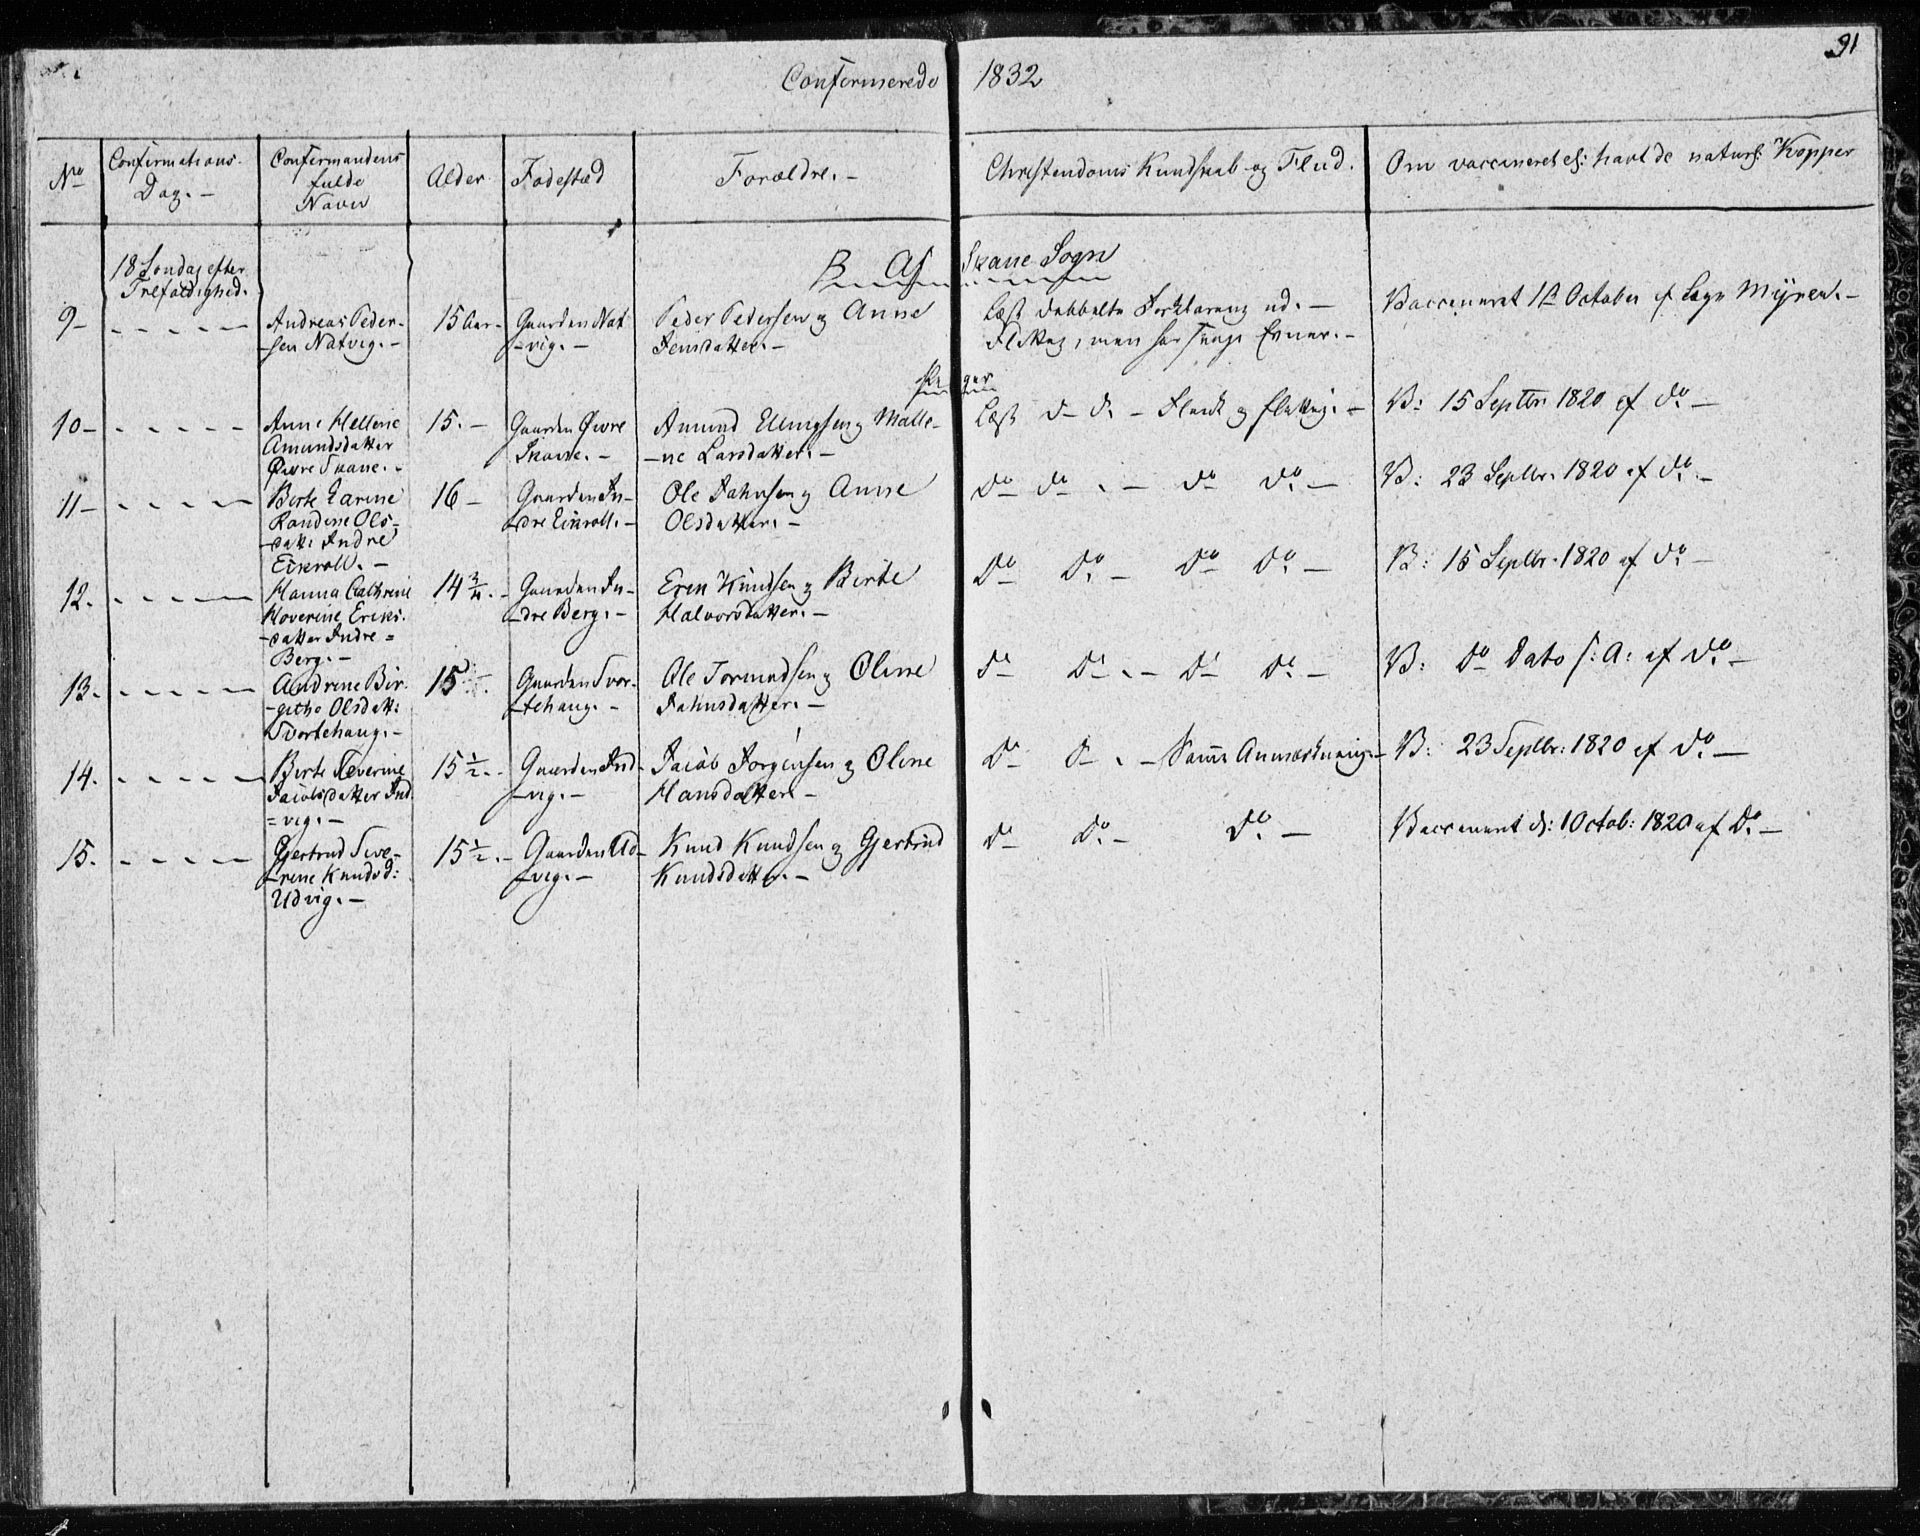 91
Confirmerede 1832
No
Confirmations-
Dag. -
Confirmandens
fulde
Navn
Alder
Fødested
Forældre. -
Christendoms Kundskab og Flid.
Om vaccineret el: havt de naturl: Kopper
18 Søndag efter
Trefoldighed.
B Af Skane Sogn
9 -
Andreas Peder-
-sen Natvig. -
15 Aar. -
Gaarden Nat
-vig. -
Peder Pedersen og Anne
Jensdatter. -
Læst dobbelte Forklaring ud. -
Flittig, men har svage Evner. -
Vaccineret 1ste October af Læge Myren. -
Piger
10 -
Anne Hellene
Amundsdatter
Øivre Skane. -
15. -
Gaarden Øivre
Skane. -
Amund Ellingsen og Malle-
-ne Larsdatter. -
Læst do do. - Flink og flittig. -
V: 15 Septbr 1820 af do -
11 -
Berte Karine
Randine Ols-
-datt: Indre
Eikrall. -
16 -
Gaarden In-
-dre Eikrall. -
Ole Jahnsen og Anne
Olsdatter. -
do do . - do do. -
V: 23 Septbr. 1820 af do. -
12.
Hanna Cathrine
Hoverine Eriks-
-datter Indre =
Berg. -
14 3/4. -
Gaarden In-
-dre Berg. -
Eren Knudsen og Berte
Halvorsdatter. -
do do. - do do. -
V: 15 Septbr. 1820 af do -
13.
Andrine Bir-
-githe Olsdatt:
Svortehaug. -
15
Gaarden Svor-
-tehaug. -
Ole Tormodsen og Oline
Jahnsdatter. -
do do. - do do. -
V: do Dato s: A: af do. -
14.
Berte Severine
Jacobsdatter Ind
= vig. -
15 1/2. -
Gaarden Ind-
-vig. -
Jacob Jørgensen og Oline
Hansdatter. -
do do. - Samme Anmærkning. -
V: 23 Septbr: 1820 af do. -
15.
Gjertrud Sive-
-rine Knudsd:
Udvig. -
15 1/2. -
Gaarden Ud-
-vig. -
Knud Knudsen og Gjertrud
Knudsdatter. -
do do. - do. -
Vaccineret d: 1 Octob: 1820 af do. -